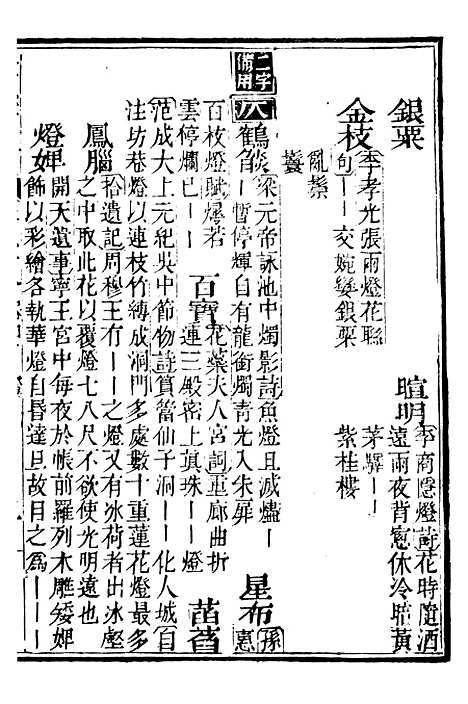 銀粟 李孝光張雨燈花聯句ーー交婉孌銀粟 暄明 李商隱燈詩花時隨酒遠雨夜背窗休冷暗黃茅驛ーー紫桂樓
金枝
亂縈
蠹
二字備用
仄 鶴焰 梁元帝詠池中燭影詩魚燈且滅燼ーー暫停輝自有龍銜燭青光入朱扉 星布 孫惠
百枝燈賦爛若雲停爛已ーー 百寶 花蘂夫人宮詞重廊曲折連三殿密上真珠ーー燈 菡萏
范成大上元紀吳中節物詩篔簹仙子洞ーー化人城自注坊巷燈以連枝竹縛成洞門多處數十重蓮花燈最多
鳳腦 拾遺記周穆王有ーー之燈又有冰荷者出冰壑之中取此花以覆燈七八尺不欲使光明遠也
燈婢 開天遺事寧王宮中每夜於帳前羅列木雕矮婢飾以彩繪各執華燈自昏達旦故目之爲ーー